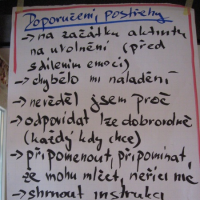 Doporučení, postřehy
→ na začátku aktivitu
na uvolnění (před
sdílením emocí)
→ chybělo mi naladění
→ nevěděl jsem proč
→ odpovídat lze dobrovolně
(každý kdy chce)
→ připomenout, připomínat,
že mohu mlčet, neříci ne,
→ shrnout instrukci